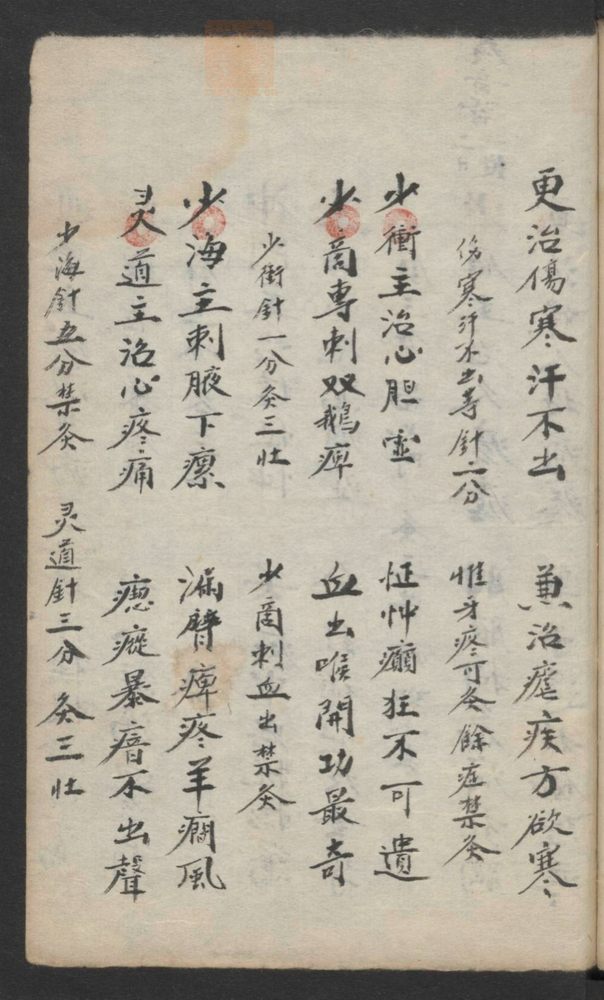 更治傷寒汗不出　兼治瘧疾方欲寒
伤寒汗不出等針二分　惟牙疼可灸餘症禁灸
少衝主治心胆虛　怔忡癲狂不可遺
少商專刺双鵝痺　血出喉開功最奇
少衝針一分灸三壯　少商刺血出禁灸
少海主刺腋下瘰　漏臂痺疼羊癇風
灵道主治心疼痛　瘛瘲暴瘖不出聲
少海針五分禁灸　灵道針三分　灸三壯